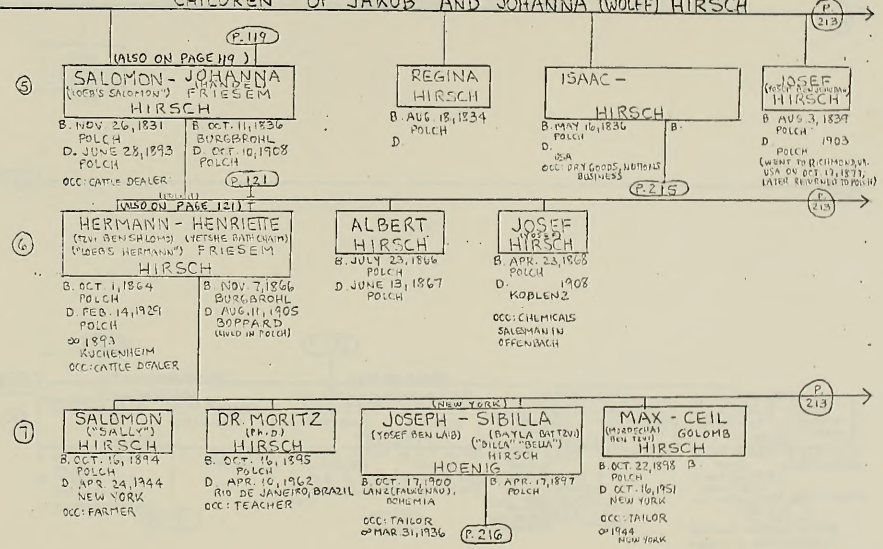 CHILDREN OF JAKOB AND JOHANNA (WOLFF) HIRSCH
P. 213
P. 119
(ALSO ON PAGE 119)
5
SALOMON - JOHANNA
("LOEB'S SALOMON") (HANDEL) FRIESEM
HIRSCH
B. NOV. 26, 1831
POLCH
D. JUNE 28, 1893
POLCH
OCC: CATTLE DEALER
B. OCT. 11, 1836
BURGBROHL
D. OCT. 10, 1908
POLCH
REGINA
HIRSCH
B. AUG. 18, 1834
POLCH
D.
ISAAC -
HIRSCH
B. MAY 16, 1836
POLCH
D.
USA
OCC: DRY GOODS, NOTIONS
BUSINESS
B.
P. 215
JOSEF
HIRSCH
B. AUG. 3, 1839
POLCH
D. 1903
POLCH
(WENT TO RICHMOND, VA.
USA ON OCT. 17, 1877,
LATER RETURNED TO POLCH)
P. 121
P. 213
(ALSO ON PAGE 121)
6
HERMANN - HENRIETTE
(TZVI BEN SHLOMO) (YETSHE BATH CHAIM)
("LOEBS HERMANN") FRIESEM
HIRSCH
B. OCT. 1, 1864
POLCH
D. FEB. 14, 1929
POLCH
∞ 1893
KUCHENHEIM
OCC: CATTLE DEALER
B. NOV. 7, 1866
BURGBROHL
D. AUG. 11, 1905
BOPPARD
(LIVED IN POLCH)
ALBERT
HIRSCH
B. JULY 23, 1866
POLCH
D. JUNE 13, 1867
POLCH
JOSEF
(YOSEF)
HIRSCH
B. APR. 23, 1868
POLCH
D. 1908
KOBLENZ
OCC: CHEMICALS
SALESMAN IN
OFFENBACH
P. 213
(NEW YORK)
7
SALOMON
("SALLY")
HIRSCH
B. OCT. 16, 1894
POLCH
D. APR. 24, 1944
NEW YORK
OCC: FARMER
DR. MORITZ
(Ph.D)
HIRSCH
B. OCT. 16, 1895
POLCH
D. APR. 10, 1962
RIO DE JANEIRO, BRAZIL
OCC: TEACHER
JOSEPH - SIBILLA
(YOSEF BEN LAIB) (BAYLA BAT TZVI)
("BILLA" "BELLA")
HIRSCH
HOENIG
B. OCT. 17, 1900
LANZ (FALKENAU),
BOHEMIA
OCC: TAILOR
∞ MAR. 31, 1936
B. APR. 17, 1897
POLCH
P. 216
MAX - CEIL
(MORDECHAI BEN TZVI) GOLOMB
HIRSCH
B. OCT. 22, 1898
POLCH
D. OCT. 16, 1951
NEW YORK
OCC: TAILOR
∞ 1944
NEW YORK
B.